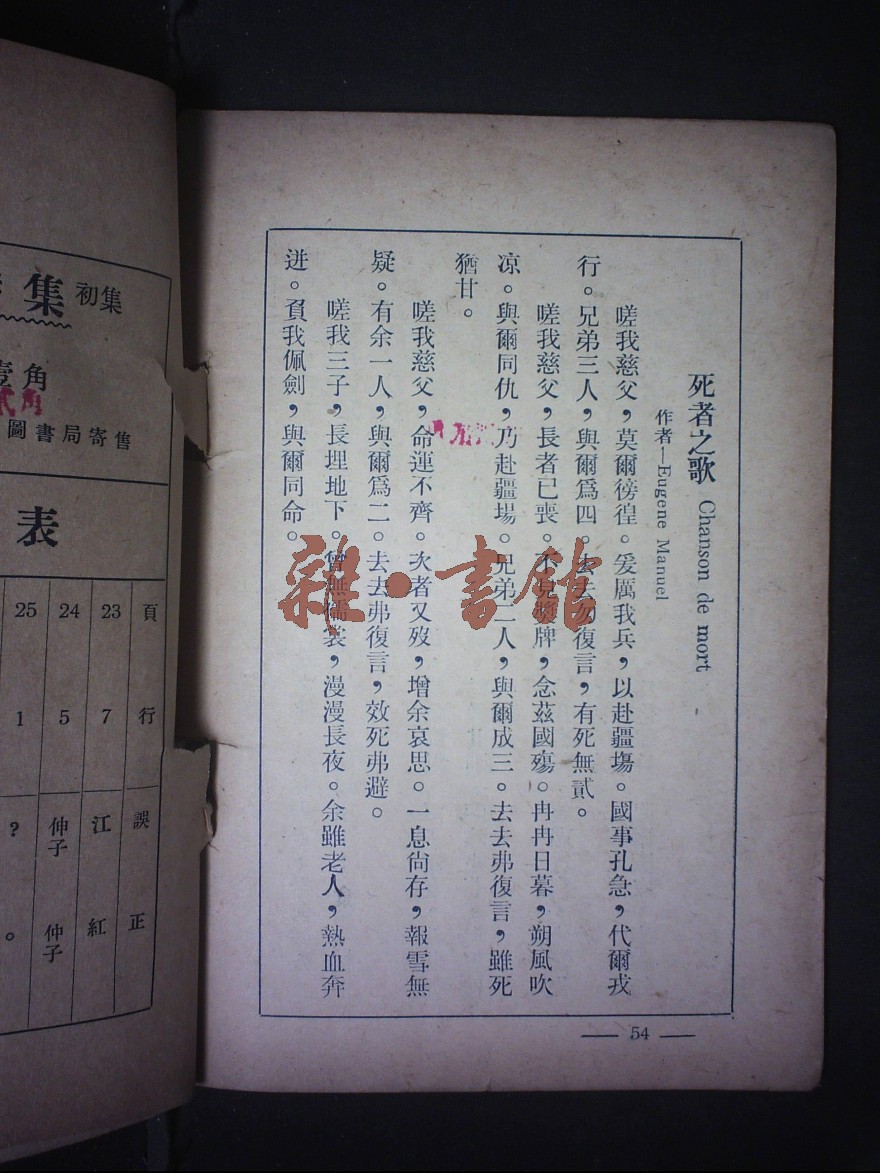 死者之歌 Chanson de mort
作者—Eugene Manuel
嗟我慈父，莫爾徬徨。爰厲我兵，以赴疆場。國事孔急，代爾戎
行。兄弟三人，與爾爲四。去去勿復言，有死無貳。
嗟我慈父，長者已喪。不見獎牌，念茲國殤。冉冉日暮，朔風吹
凉。與爾同仇，乃赴疆場。兄弟二人，與爾成三。去去弗復言，雖死
猶甘。
嗟我慈父，命運不齊。次者又歿，增余哀思。一息尙存，報雪無
疑。有余一人，與爾爲二。去去弗復言，效死弗避。
嗟我三子，長埋地下。曾無襦裳，漫漫長夜。余雖老人，熱血奔
迸。負我佩劍，與爾同命。
— 54 —
雜·書館
集 初集
壹角
貳角
圖書局寄售
表
頁 行 誤 正
23 7 江 紅
24 5 仲子 仲子
25 1 ? 。